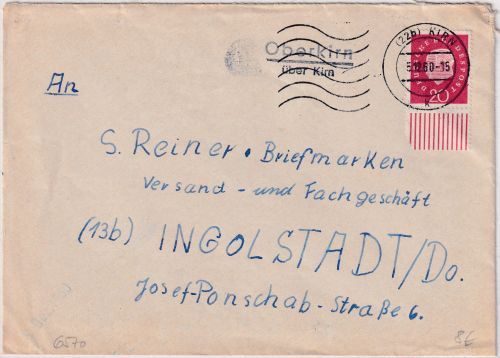 Oberkirn
über Kirn
(22b) KIRN
5.12.60-15
k
DEUTSCHE BUNDESPOST
20
An
S. Reiner. Briefmarken
Versand - und Fachgeschäft
(13b) INGOLSTADT/Do.
Josef-Ponschab-Straße 6.
6570
8€